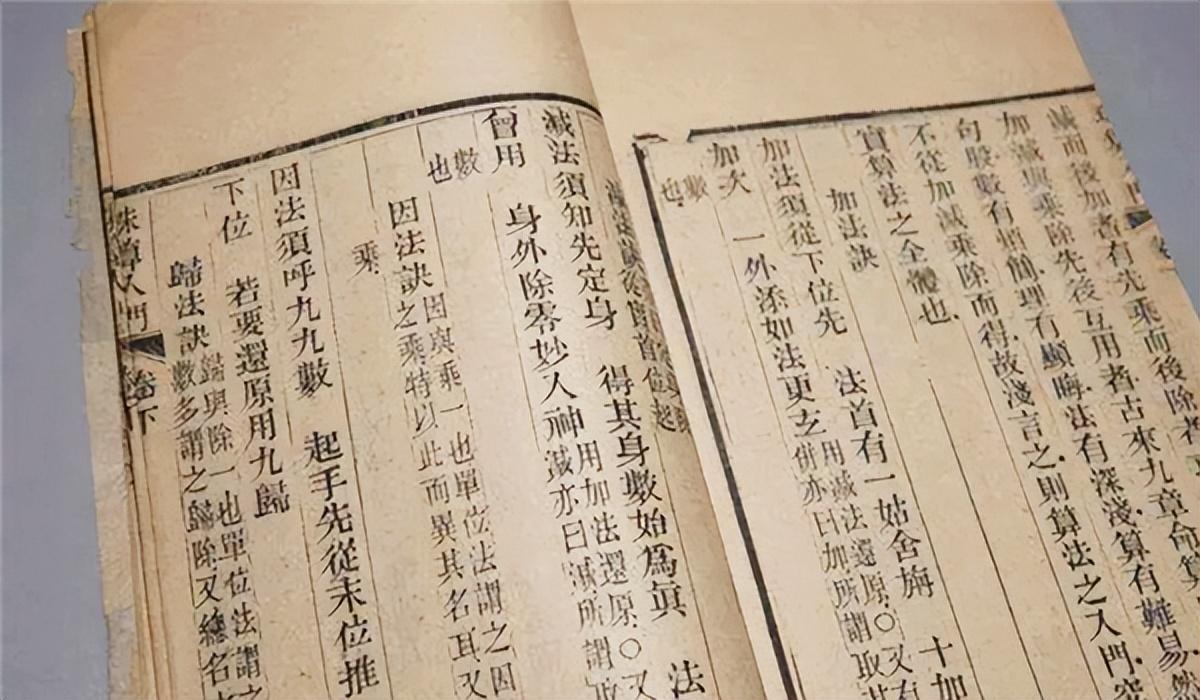 減而後加者有先乘而後除者
加減與乘除先後互用者古來九章命算
句股數有煩簡理有顯晦法有深淺算有難易
不從加減乘除而得故淺言之則算法之入門
實算法之全體也
加法訣
加法須從下位先 法首有一姑舍旃 十加
加次 一外添如法更玄 用減法還原○又有
併亦曰加所謂取其
數
也
減法須知先定身 得其身數始爲眞 法
曾用 身外除零妙入神 用加法還原○又
減亦曰減所謂取
數
也
因法訣 因與乘一也單位法謂之因
之乘特以此而異其名耳又
乘
因法須呼九九數 起手先從末位推
下位 若要還原用九歸
歸法訣 歸與除一也單位法謂之
數多謂之歸除又總名
珠算入門 卷下